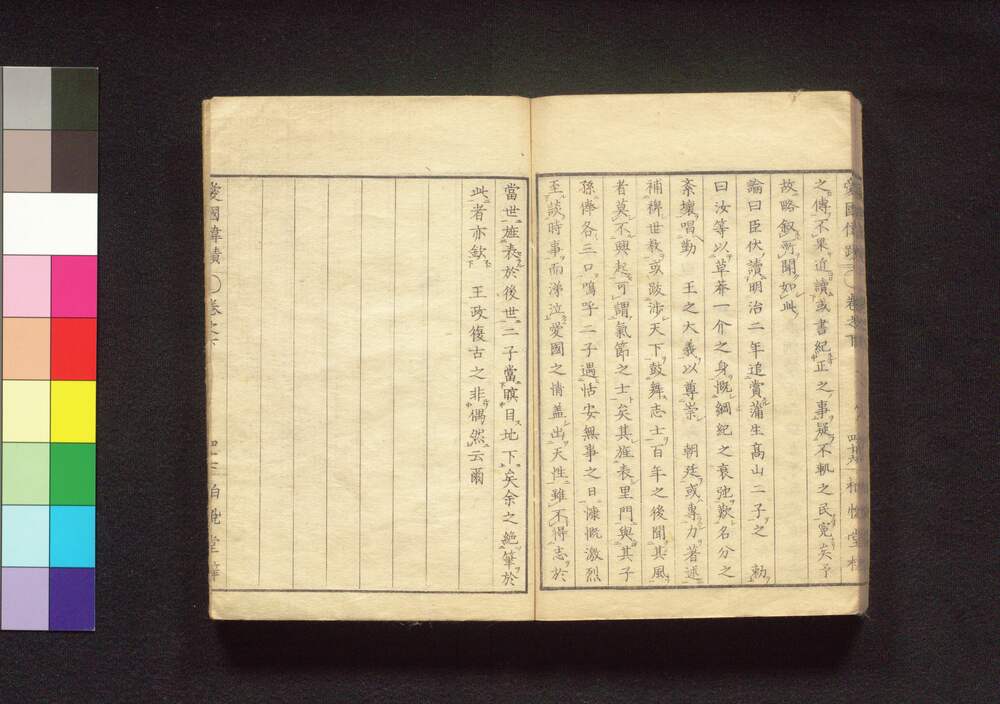 之傳不果近讀或書紀正之事疑不軌之民寃矣予
故略叙所聞如此
論曰臣伏讀明治二年追賞蒲生高山二子之　勅
曰汝等以草莽一介之身慨綱紀之衰弛歎名分之
紊壞唱勤　王之大義以尊崇　朝廷或專力著述
補裨世教或跋涉天下鼓舞志士百年之後聞其風
者莫不興起可謂氣節之士矣其旌表里門與其子
孫俸各三口嗚呼二子遇恬安無事之日慷慨激烈
至談時事而涕泣愛國之情盖出天性雖不得志於
當世旌表於後世二子當瞑目地下矣余之絶筆於
此者亦欽　王政復古之非偶然云爾
愛國偉績　卷之下